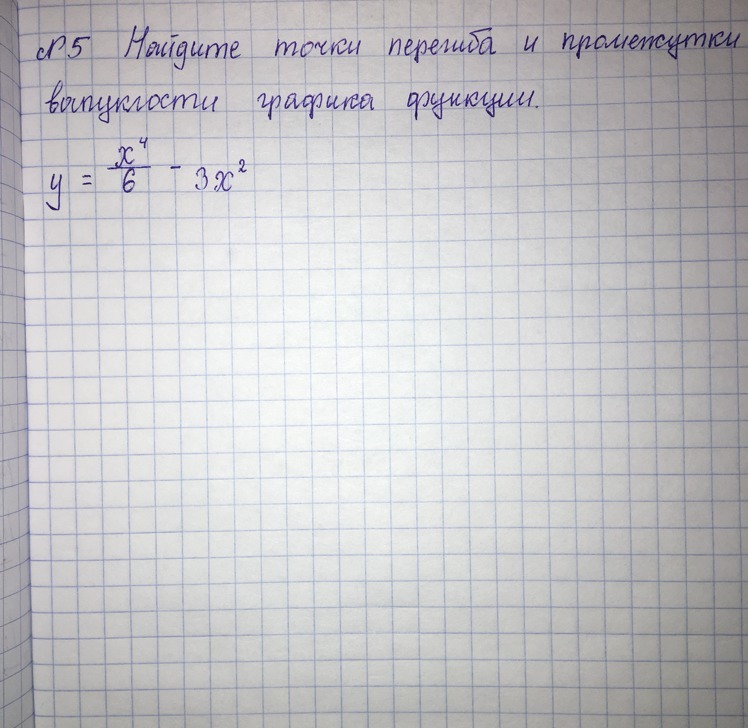 №5 Найдите точки перегиба и промежутки
выпуклости графика функции.
y = x⁴/6 - 3x²